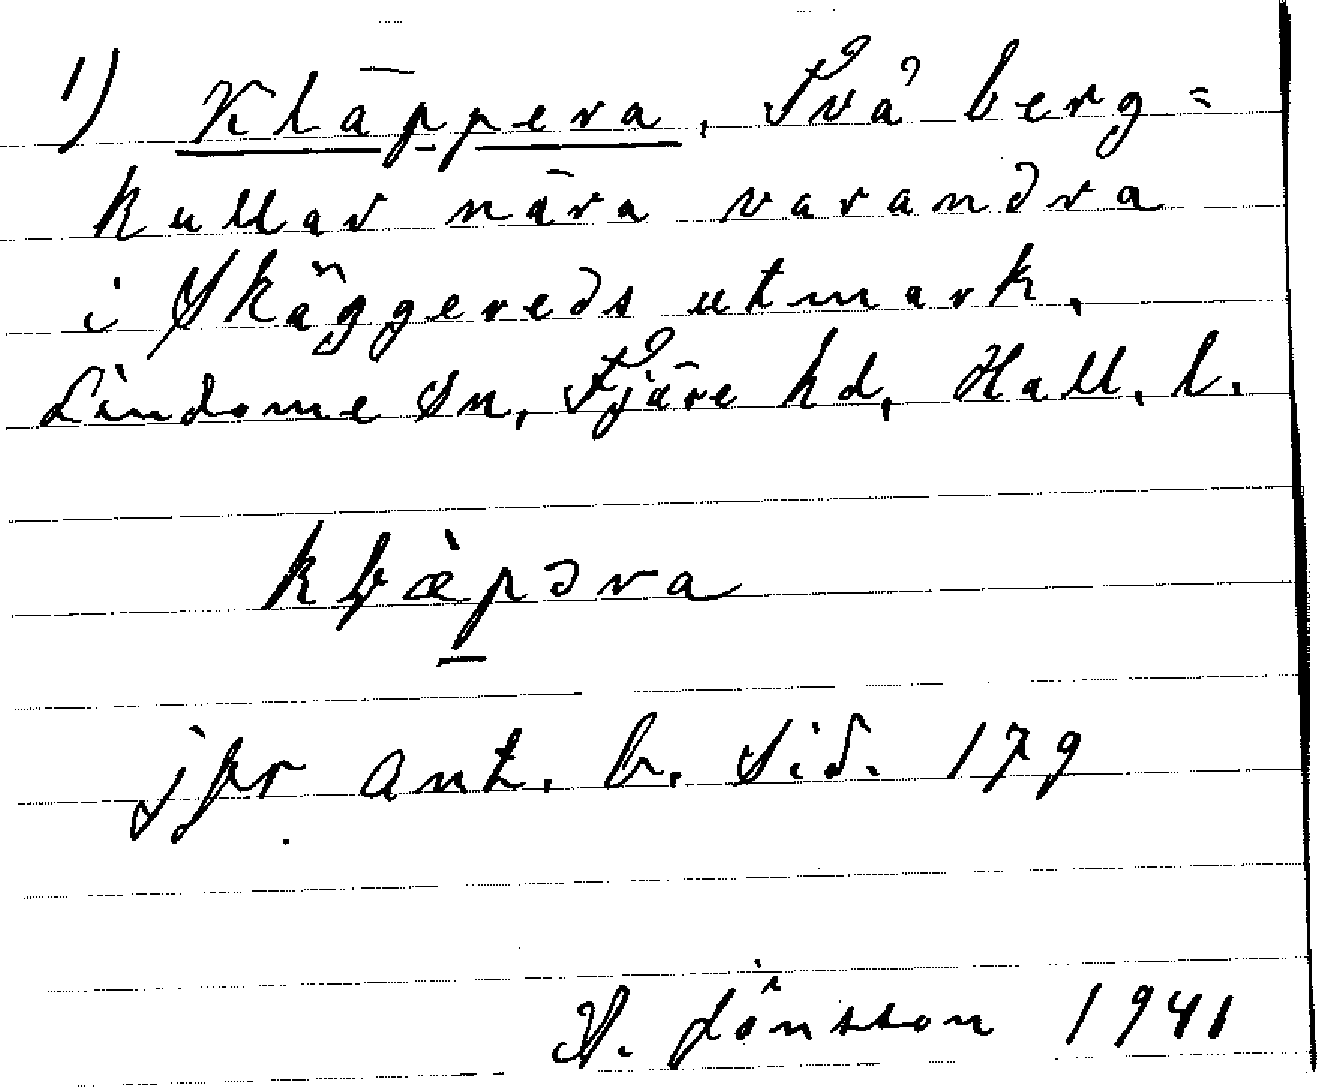 1) Kläppera, Två berg=
kullar nära varandra
i Skäggereds utmark,
Lindome Sn, Fjäre hd, Hall. l.
kɽæ̀pəra
jfr Ant. b. Sid. 179
H. Jönsson 1941